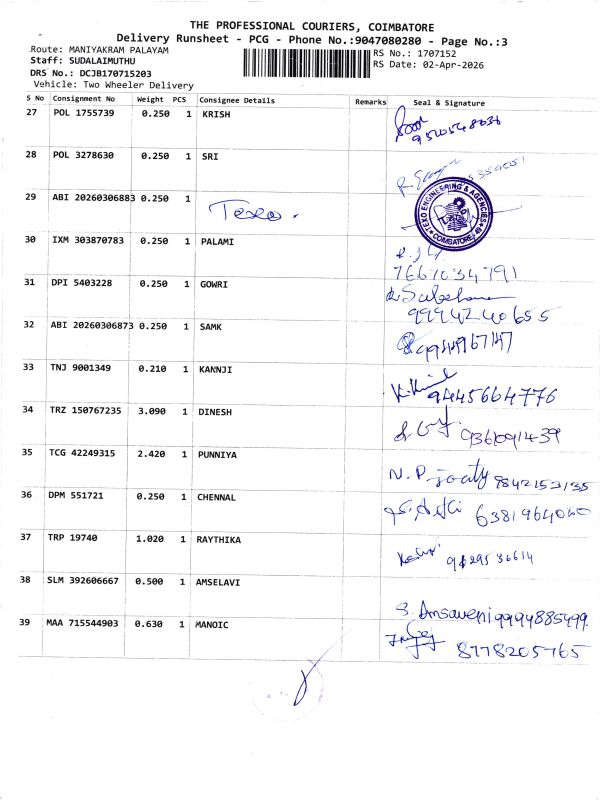 THE PROFESSIONAL COURIERS, COIMBATORE
Delivery Runsheet - PCG - Phone No.:9047080280 - Page No.:3
Route: MANIYAKRAM PALAYAM
RS No.: 1707152
Staff: SUDALAIMUTHU
RS Date: 02-Apr-2026
DRS No.: DCJB170715203
Vehicle: Two Wheeler Delivery
S No Consignment No Weight PCS Consignee Details Remarks Seal & Signature
27 POL 1755739 0.250 1 KRISH
28 POL 3278630 0.250 1 SRI
29 ABI 20260306883 0.250 1 Texo.
TEXO ENGINEERING & AGENCIES COIMBATORE
30 IXM 303870783 0.250 1 PALAMI
31 DPI 5403228 0.250 1 GOWRI
9994240655
32 ABI 20260306873 0.250 1 SAMK
33 TNJ 9001349 0.210 1 KANNJI
9445664776
34 TRZ 150767235 3.090 1 DINESH
9361091439
35 TCG 42249315 2.420 1 PUNNIYA
9842153135
36 DPM 551721 0.250 1 CHENNAL
37 TRP 19740 1.020 1 RAYTHIKA
38 SLM 392606667 0.500 1 AMSELAVI
S. Amsaveni 9994885499
39 MAA 715544903 0.630 1 MANOIC
8778205765